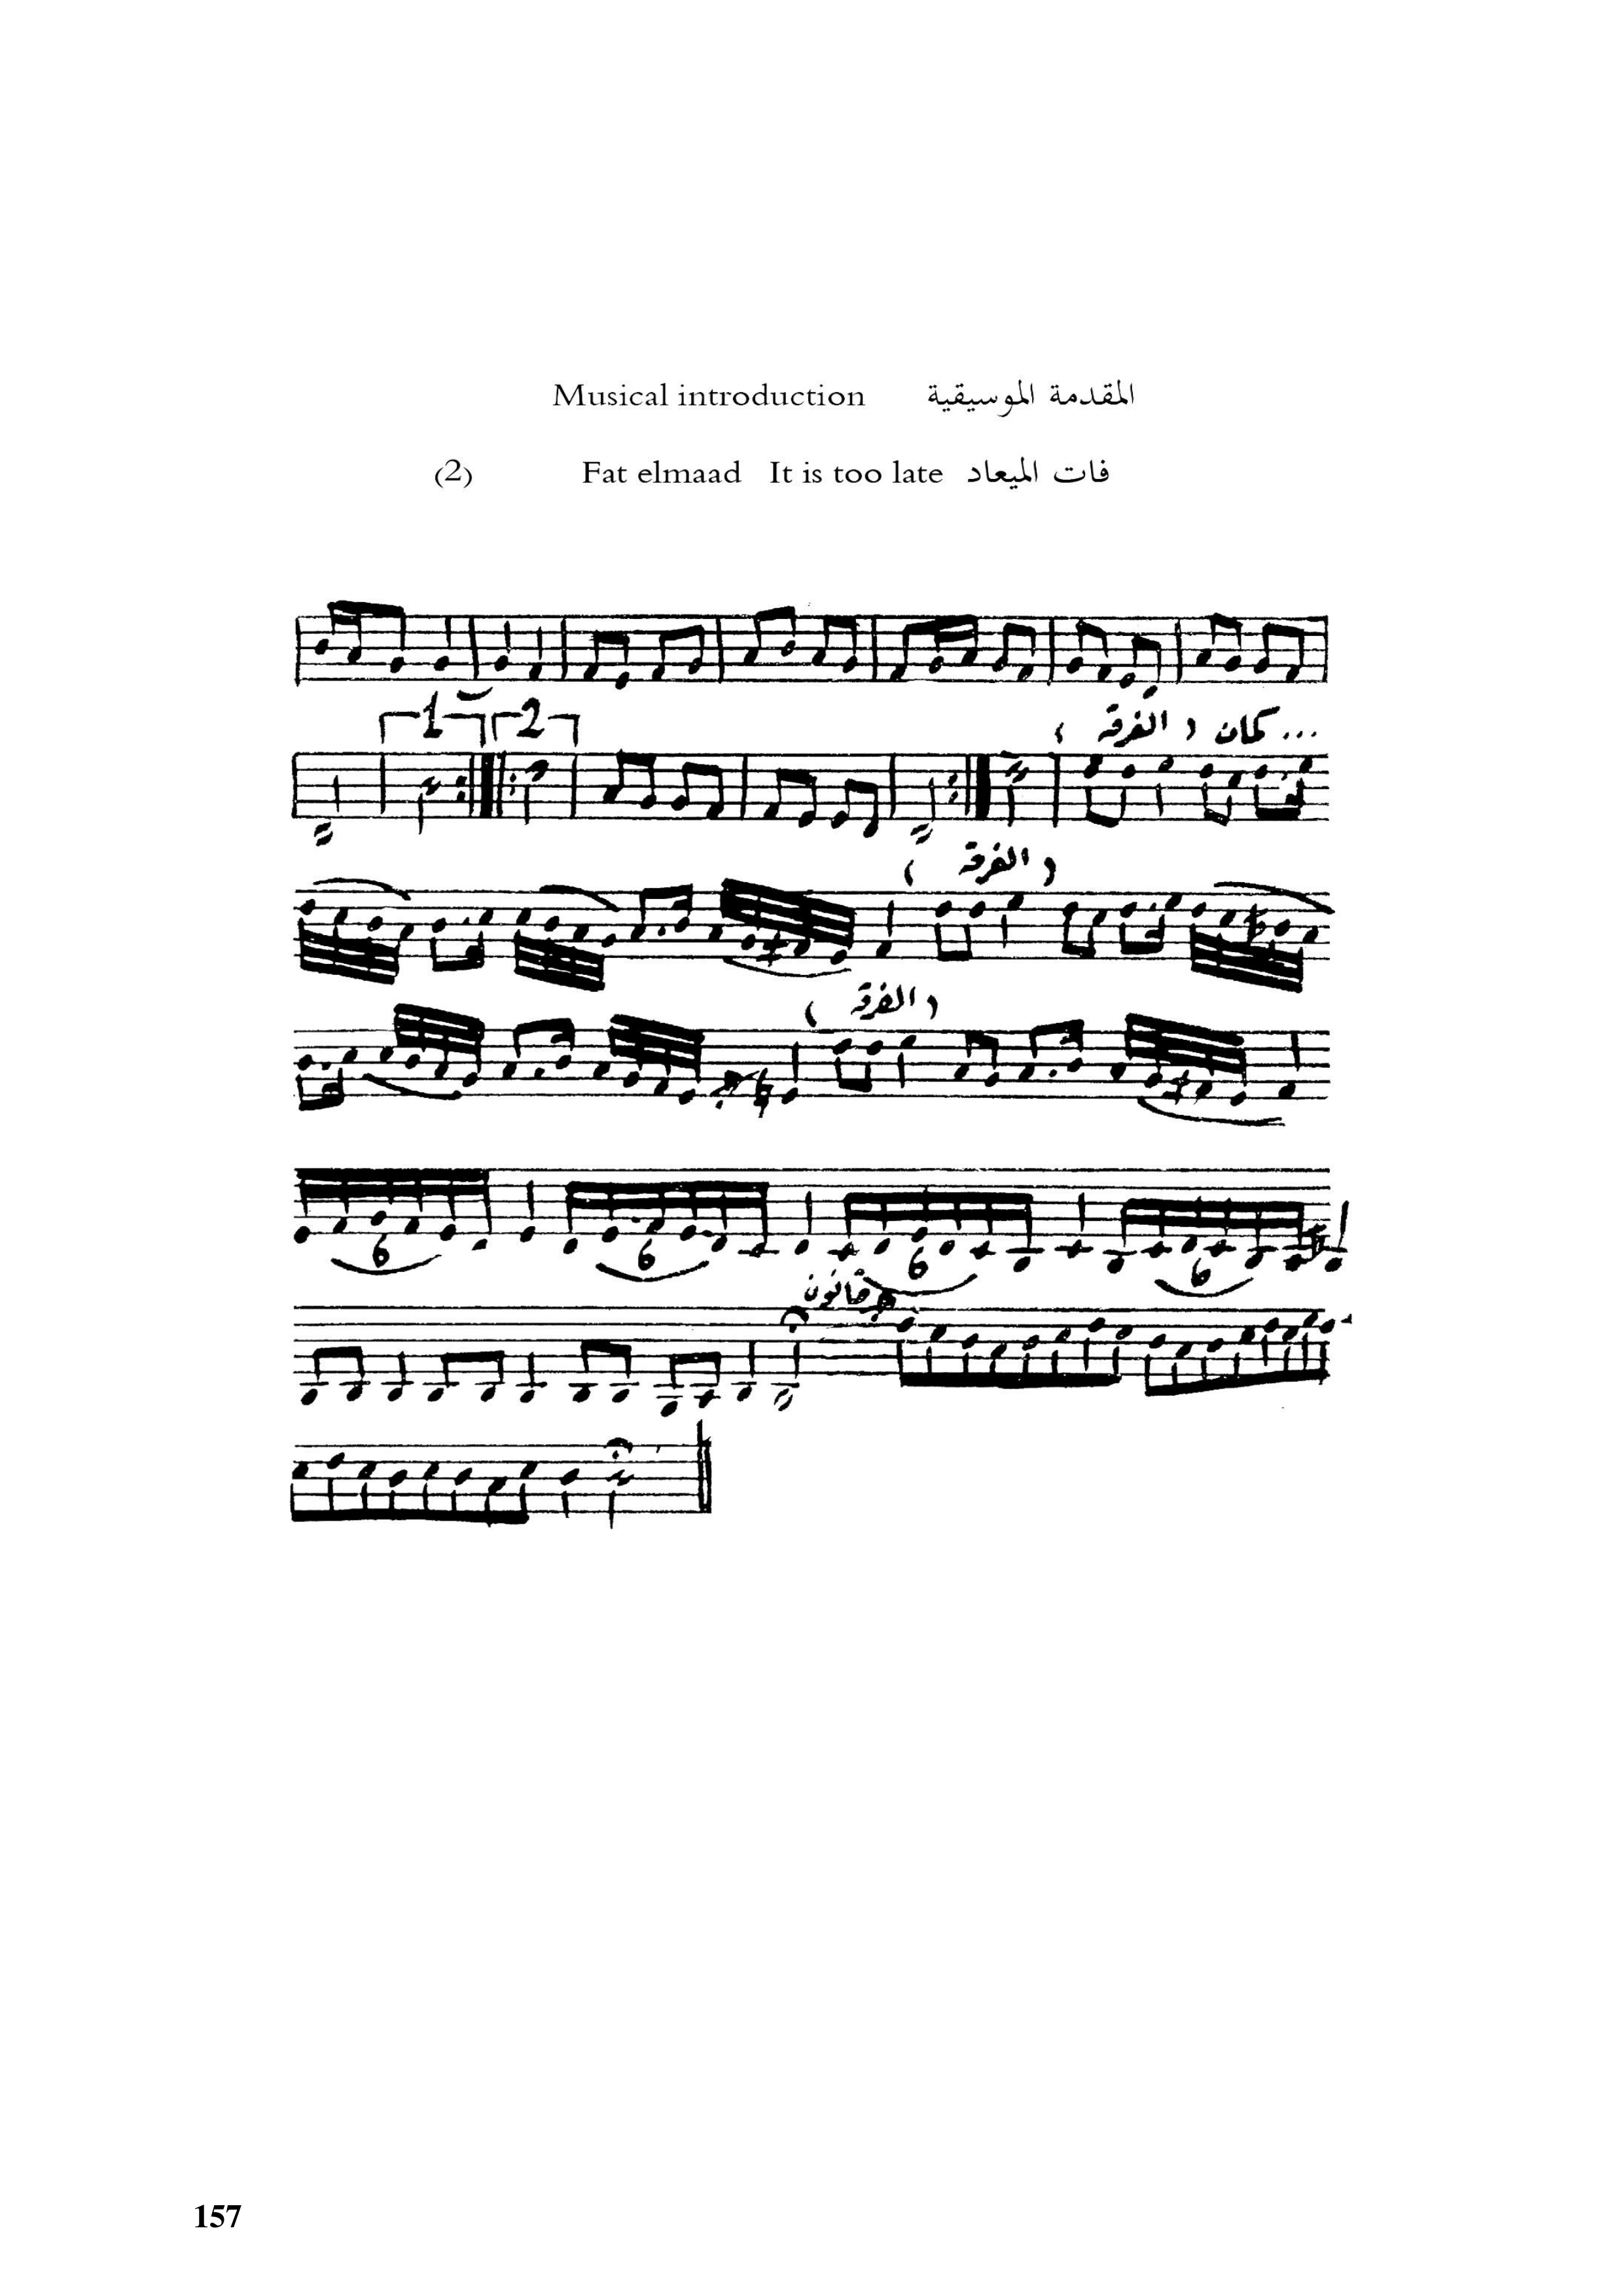 Musical introduction المقدمة الموسيقية
(2) Fat elmaad It is too late فات الميعاد
1 2 ( الفرقة ) كمان ...
( الفرقة )
( الفرقة )
6 6 6 6
قانون
157